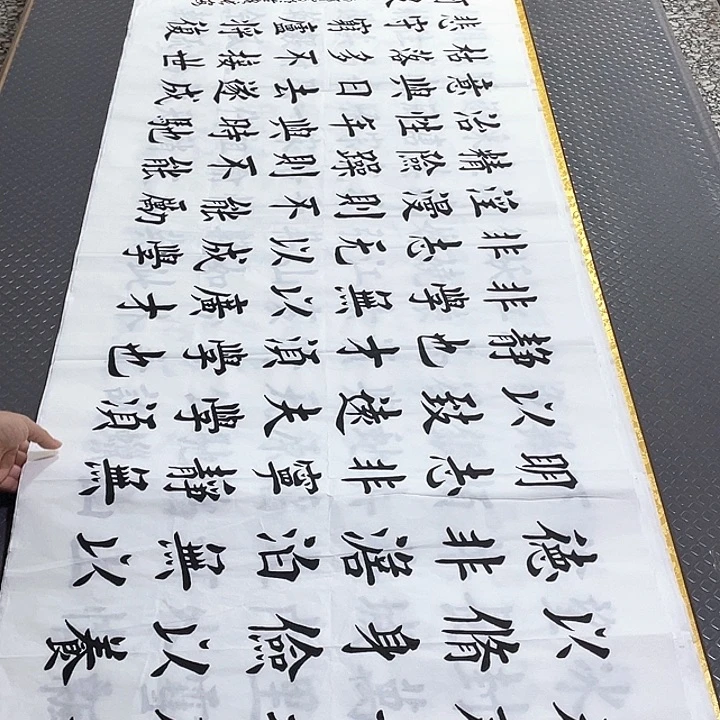 以脩身儉以養
德非澹泊無以
明志非寧靜無
以致遠夫學須
靜也才須學也
非學無以廣才
非志无以成學
淫漫則不能勵
精險躁則不能
治性年與時馳
意與日去遂成
枯落多不接世
悲守窮廬將復